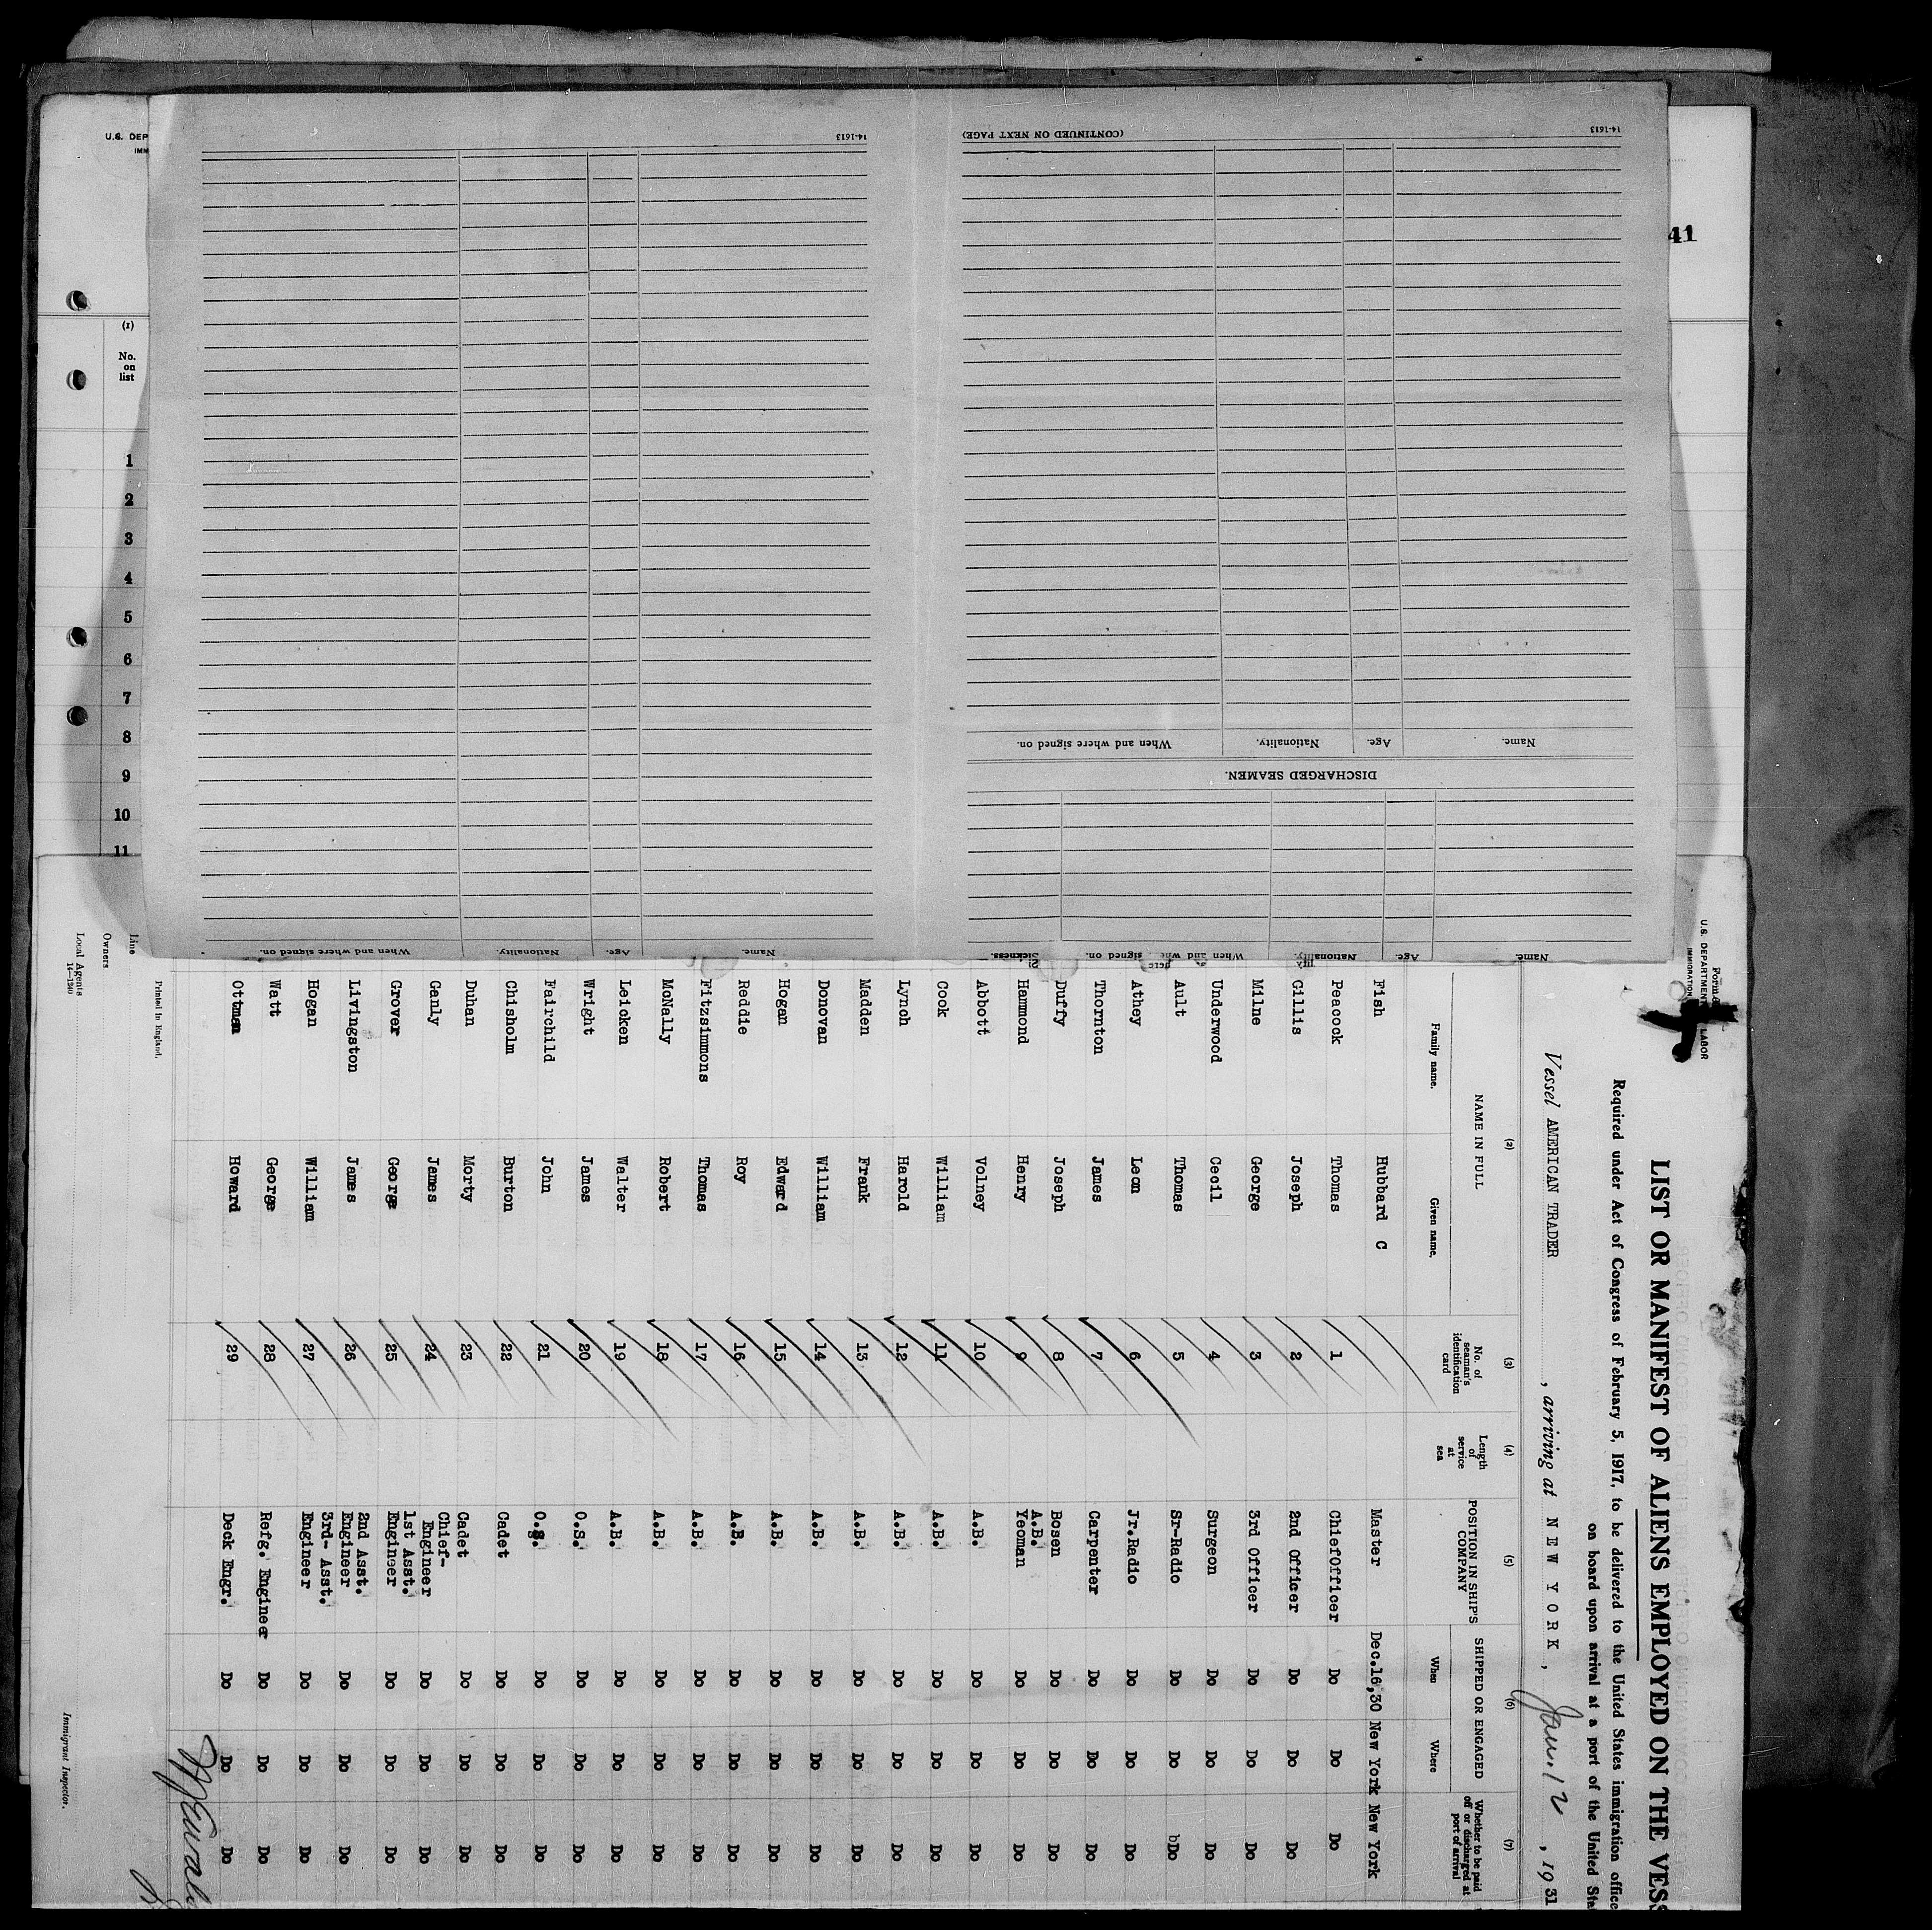 U.S. DEP
IMM
41
(1)
No.
on
list
1
2
3
4
5
6
7
8
9
10
11
14-1613
14-1613
(CONTINUED ON NEXT PAGE)
Name.
Age.
Nationality.
When and where signed on.
DISCHARGED SEAMEN.
Name.
Age.
Nationality.
When and where signed on.
Sickness.
Name.
Age.
Nationality.
When and where signed on.
Form
U.S. DEPARTMENT LABOR
IMMIGRATION
LIST OR MANIFEST OF ALIENS EMPLOYED ON THE VESS
Required under Act of Congress of February 5, 1917, to be delivered to the United States immigration office
on board upon arrival at a port of the United Sta
Vessel AMERICAN TRADER, arriving at NEW YORK, Jan. 12, 1931
(2) (3) (4) (5) (6) (7)
NAME IN FULL
Family name. Given name.
No. of seaman's identification card
Length of service at sea
POSITION IN SHIP'S COMPANY
SHIPPED OR ENGAGED
When Where
Whether to be paid off or discharged at port of arrival
Fish Hubbard C Master Dec.16,30 New York New York
Peacock Thomas 1 ChiefOfficer Do Do Do
Gillis Joseph 2 2nd Officer Do Do Do
Milne George 3 3rd Officer Do Do Do
Underwood Cecil 4 Surgeon Do Do Do
Ault Thomas 5 Sr-Radio Do Do bDo
Athey Leon 6 Jr.Radio Do Do Do
Thornton James 7 Carpenter Do Do Do
Duffy Joseph 8 Bosen Do Do Do
Hammond Henry 9 A.B. Yeoman Do Do Do
Abbott Volney 10 A.B. Do Do Do
Cook William 11 A.B. Do Do Do
Lynch Harold 12 A.B. Do Do Do
Madden Frank 13 A.B. Do Do Do
Donovan William 14 A.B. Do Do Do
Hogan Edward 15 A.B. Do Do Do
Reddie Roy 16 A.B. Do Do Do
Fitzsimmons Thomas 17 A.B. Do Do Do
McNally Robert 18 A.B. Do Do Do
Leicken Walter 19 A.B. Do Do Do
Wright James 20 O.S. Do Do Do
Fairchild John 21 O.S. Do Do Do
Chisholm Burton 22 Cadet Do Do Do
Duhan Morty 23 Cadet Do Do Do
Ganly James 24 Chief-Engineer Do Do Do
Grover George 25 1st Asst. Engineer Do Do Do
Livingston James 26 2nd Asst. Engineer Do Do Do
Hogan William 27 3rd- Asst. Engineer Do Do Do
Watt George 28 Refg. Engineer Do Do Do
Ottman Howard 29 Deck Engr. Do Do Do
Printed in England.
Line
Owners
Local Agents
14-1240
Immigrant Inspector.